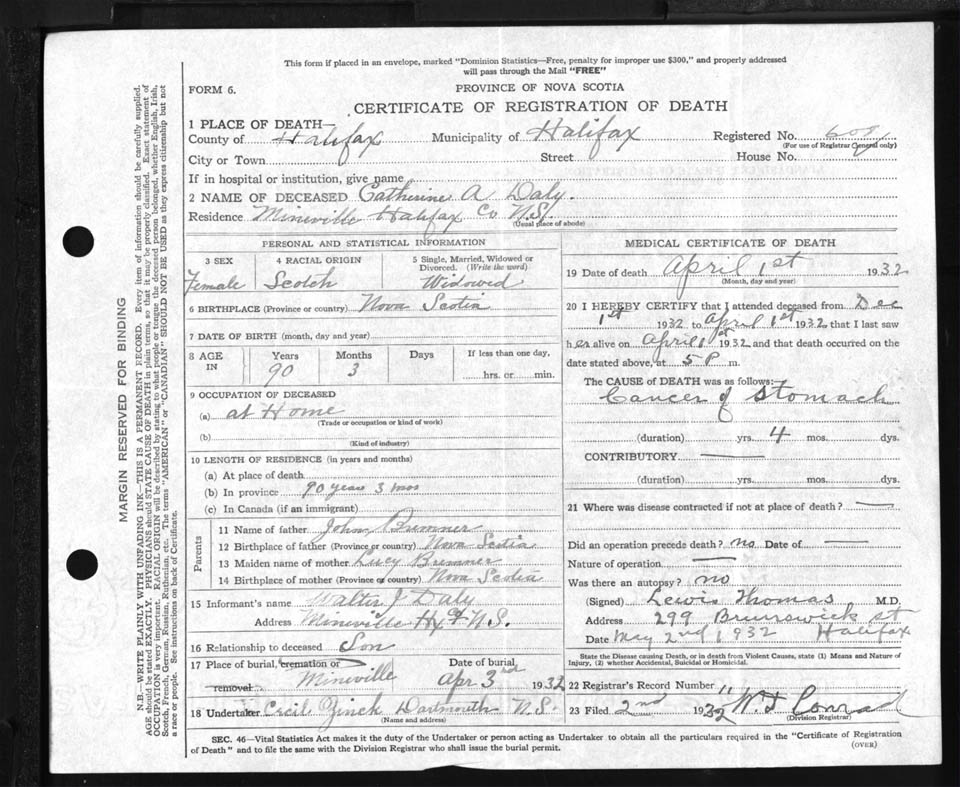 This form if placed in an envelope, marked "Dominion Statistics—Free, penalty for improper use $300," and properly addressed
will pass through the Mail "FREE"
FORM 6.
PROVINCE OF NOVA SCOTIA
CERTIFICATE OF REGISTRATION OF DEATH
1 PLACE OF DEATH—
County of Halifax Municipality of Halifax Registered No.
(For use of Registrar General only)
City or Town Street House No.
If in hospital or institution, give name
2 NAME OF DECEASED Catherine A Daly.
Residence Mineville Halifax Co N.S.
(Usual place of abode)
PERSONAL AND STATISTICAL INFORMATION
3 SEX 4 RACIAL ORIGIN 5 Single, Married, Widowed or
Divorced. (Write the word)
Female Scotch Widowed
6 BIRTHPLACE (Province or country) Nova Scotia
7 DATE OF BIRTH (month, day and year)
8 AGE IN Years Months Days If less than one day,
90 3 hrs. or min.
9 OCCUPATION OF DECEASED
(a) at Home
(Trade or occupation or kind of work)
(b)
(Kind of industry)
10 LENGTH OF RESIDENCE (in years and months)
(a) At place of death
(b) In province 90 years 3 mos
(c) In Canada (if an immigrant)
Parents
11 Name of father John Bremner
12 Birthplace of father (Province or country) Nova Scotia
13 Maiden name of mother Lucy Bremner
14 Birthplace of mother (Province or country) Nova Scotia
15 Informant's name Walter J Daly
Address Mineville Hx N.S.
16 Relationship to deceased Son
17 Place of burial, cremation or Date of burial,
removal Mineville Apr 3rd 1932
18 Undertaker Cecil Zinck Dartmouth N.S.
(Name and address)
MEDICAL CERTIFICATE OF DEATH
19 Date of death April 1st 1932
(Month, day and year)
20 I HEREBY CERTIFY that I attended deceased from Dec
1st 1932 to April 1st 1932 that I last saw
her alive on April 1st 1932 and that death occurred on the
date stated above, at 5 P m.
The CAUSE OF DEATH was as follows:
Cancer of Stomach
(duration) yrs. 4 mos. dys.
CONTRIBUTORY
(duration) yrs. mos. dys.
21 Where was disease contracted if not at place of death?
Did an operation precede death? no Date of
Nature of operation
Was there an autopsy? no
(Signed) Lewis Thomas M.D.
Address 299 Brunswick st
Date May 2nd 1932 Halifax
State the Disease Causing Death, or in death from Violent Causes, state (1) Means and Nature of
Injury, (2) whether Accidental, Suicidal or Homicidal.
22 Registrar's Record Number 11
23 Filed 2nd 1932 Conrad
(Division Registrar)
SEC. 46—Vital Statistics Act makes it the duty of the Undertaker or person acting as Undertaker to obtain all the particulars required in the "Certificate of Registration
of Death" and to file the same with the Division Registrar who shall issue the burial permit.
(OVER)
MARGIN RESERVED FOR BINDING
N.B.—WRITE PLAINLY WITH UNFADING INK—THIS IS A PERMANENT RECORD. Every item of information should be carefully supplied.
AGE should be stated EXACTLY. PHYSICIANS should STATE CAUSE OF DEATH in plain terms, so that it may be properly classified. Exact statement of
OCCUPATION is very important. RACIAL ORIGIN will be described by stating to what people or tongue the deceased person belonged, whether English, Irish,
Scotch, French, German, Russian, Ruthenian, etc. The terms "AMERICAN" or "CANADIAN" SHOULD NOT BE USED as they express citizenship but not
a race or people. See instructions on back of Certificate.